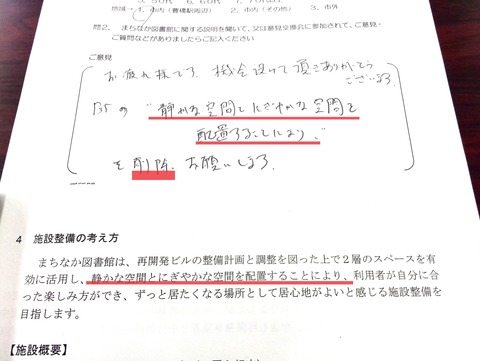 地域→ 1、市内（豊橋駅周辺） 2、市内（その他） 3、市外
問2. まちなか図書館に関する説明を聞いて、又は意見交換会に参加されて、ご意見・
ご質問などがありましたらご記入ください
ご意見
お疲れ様です。機会設けて頂きありがとう
ございます。
P5の "静かな空間とにぎやかな空間を
配置することにより、"
を削除 お願いします。
4 施設整備の考え方
まちなか図書館は、再開発ビルの整備計画と調整を図った上で2層のスペースを有
効に活用し、静かな空間とにぎやかな空間を配置することにより、利用者が自分に合
った楽しみ方ができ、ずっと居たくなる場所として居心地がよいと感じる施設整備を
目指します。
【施設概要】